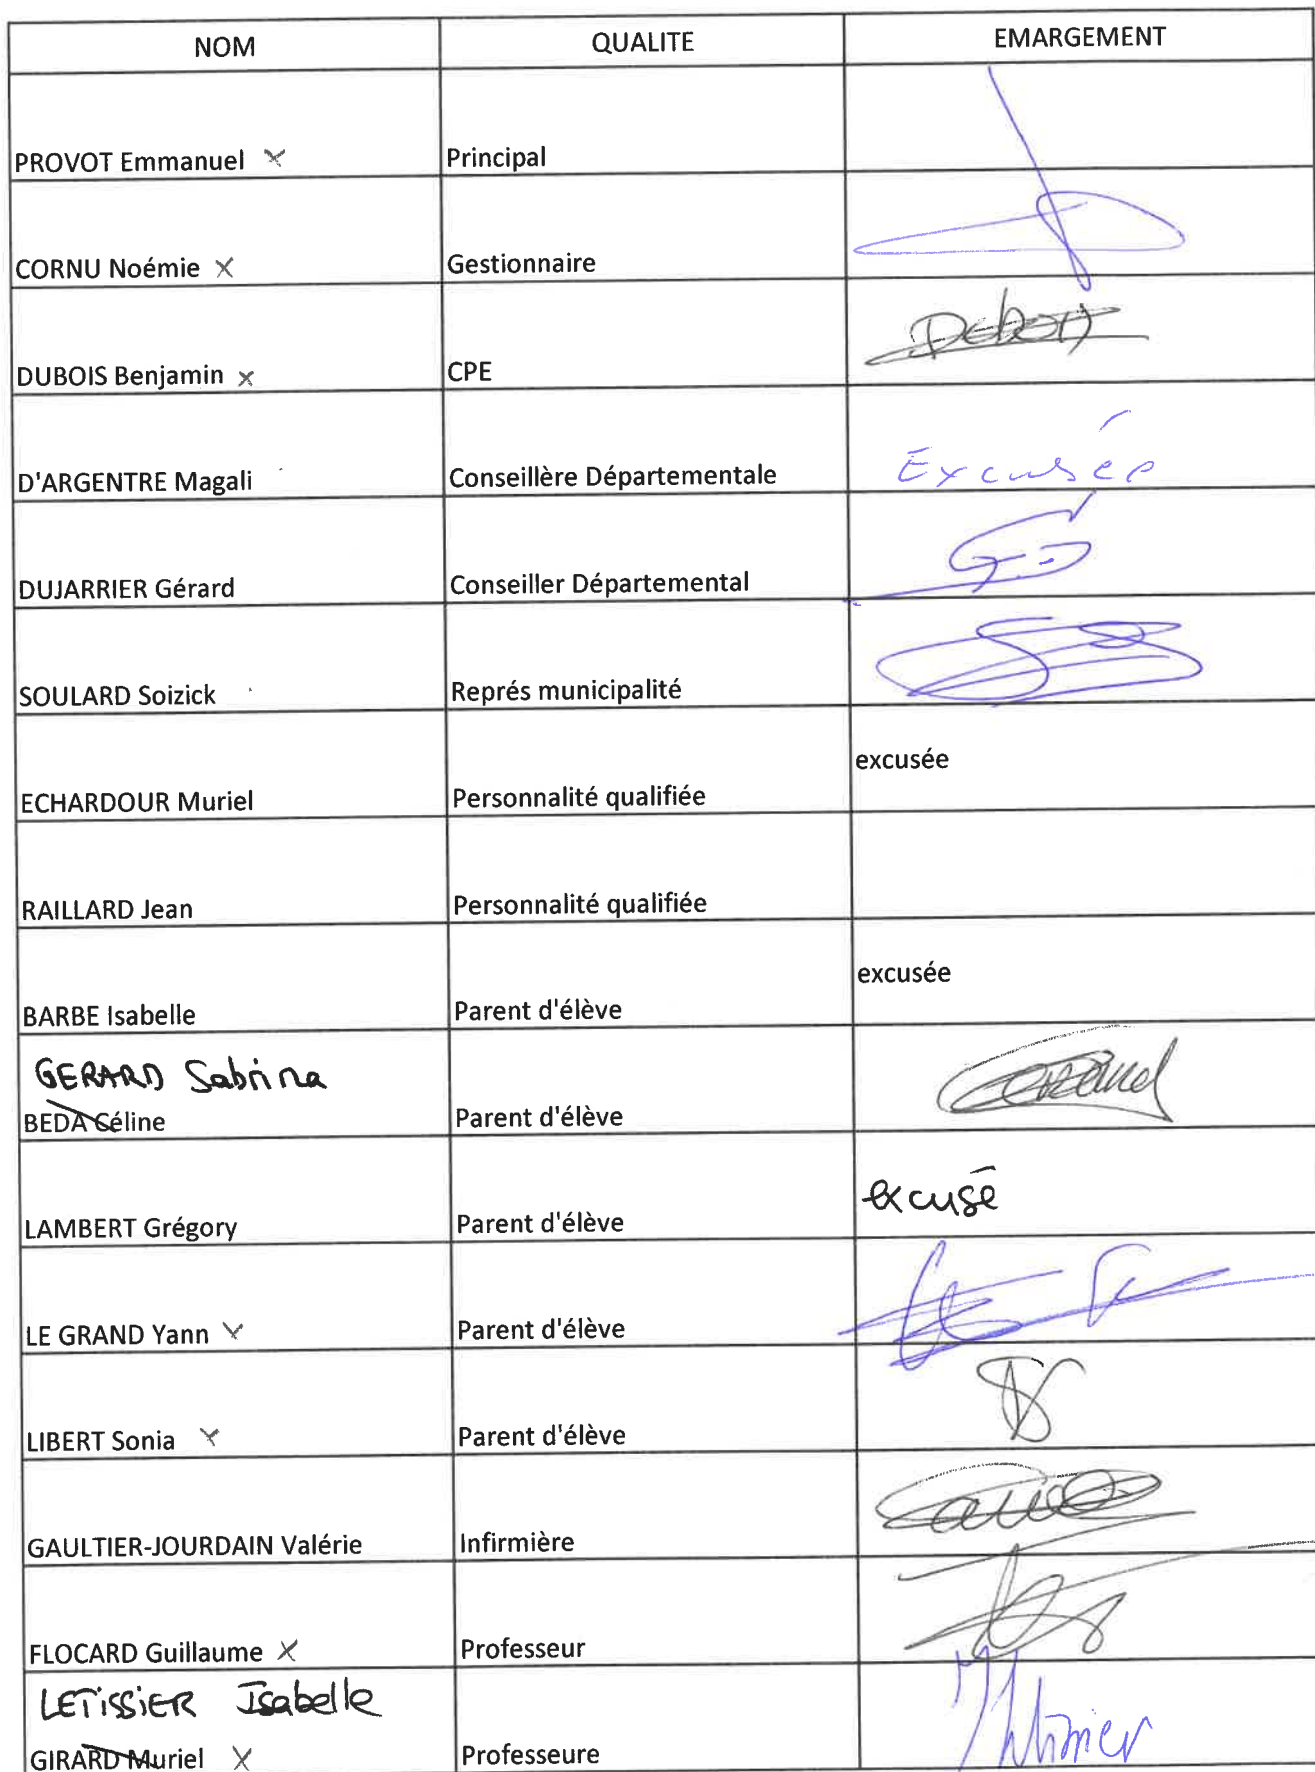 NOM QUALITE EMARGEMENT
PROVOT Emmanuel X Principal
CORNU Noémie X Gestionnaire
DUBOIS Benjamin X CPE Dubois
D'ARGENTRE Magali Conseillère Départementale Excusée
DUJARRIER Gérard Conseiller Départemental
SOULARD Soizick Représ municipalité
ECHARDOUR Muriel Personnalité qualifiée excusée
RAILLARD Jean Personnalité qualifiée
BARBE Isabelle Parent d'élève excusée
GERARD Sabrina
BEDA Céline Parent d'élève
LAMBERT Grégory Parent d'élève excusé
LE GRAND Yann X Parent d'élève
LIBERT Sonia X Parent d'élève
GAULTIER-JOURDAIN Valérie Infirmière
FLOCARD Guillaume X Professeur
LETISSIER Isabelle
GIRARD Muriel X Professeure